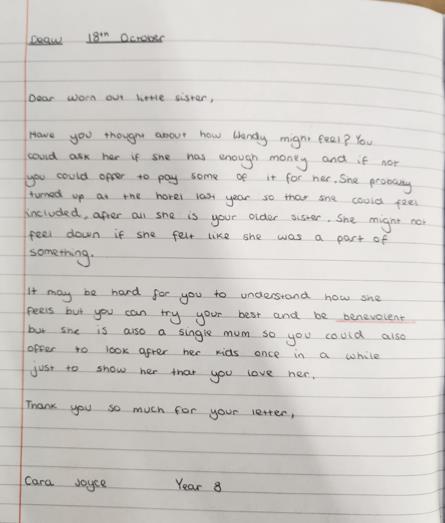 DEAW 18th October
Dear worn out little sister,
Have you thought about how Wendy might feel? You
could ask her if she has enough money and if not
you could offer to pay some of it for her. She probably
turned up at the hotel last year so that she could feel
included, after all she is your older sister. She might not
feel down if she felt like she was a part of
something.
It may be hard for you to understand how she
feels but you can try your best and be benevolent
but she is also a single mum so you could also
offer to look after her kids once in a while
just to show her that you love her.
Thank you so much for your letter,
Cara Joyce Year 8